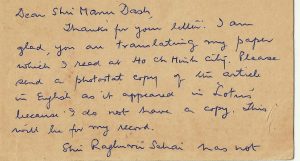 Dear Shri Manu Dash,
Thanks for your letter. I am
glad, you are translating my paper
which I read at Ho Chi Minh City. Please
send a photostat copy of the article
in English as it appeared in Lotus
because I do not have a copy. This
will be for my record.
Shri Raghuvir Sahai has not